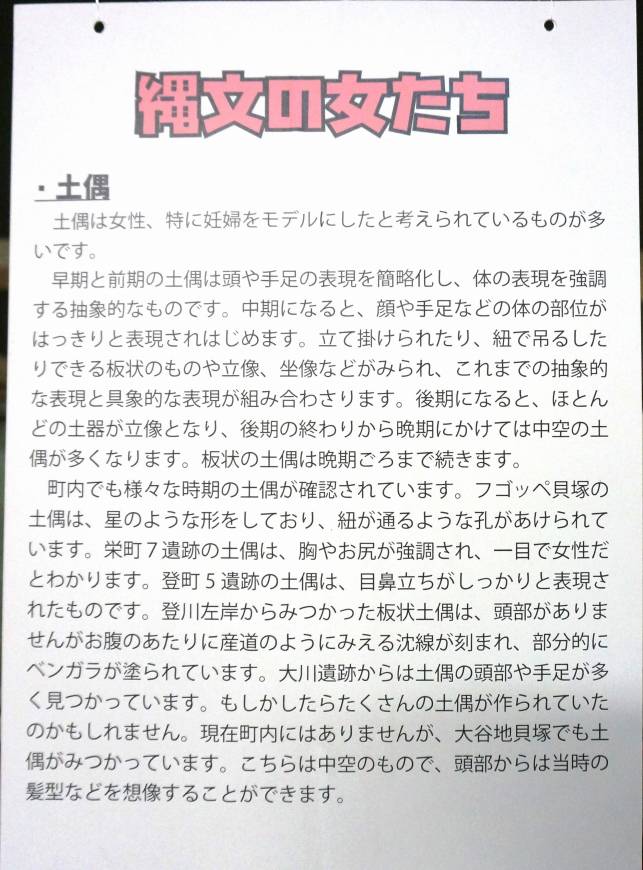 縄文の女たち
・土偶
土偶は女性、特に妊婦をモデルにしたと考えられているものが多
いです。
早期と前期の土偶は頭や手足の表現を簡略化し、体の表現を強調
する抽象的なものです。中期になると、顔や手足などの体の部位が
はっきりと表現されはじめます。立て掛けられたり、紐で吊るした
りできる板状のものや立像、坐像などがみられ、これまでの抽象的
な表現と具象的な表現が組み合わさります。後期になると、ほとん
どの土器が立像となり、後期の終わりから晩期にかけては中空の土
偶が多くなります。板状の土偶は晩期ごろまで続きます。
町内でも様々な時期の土偶が確認されています。フゴッペ貝塚の
土偶は、星のような形をしており、紐が通るような孔があけられて
います。栄町７遺跡の土偶は、胸やお尻が強調され、一目で女性だ
とわかります。登町５遺跡の土偶は、目鼻立ちがしっかりと表現さ
れたものです。登川左岸からみつかった板状土偶は、頭部がありま
せんがお腹のあたりに産道のようにみえる沈線が刻まれ、部分的に
ベンガラが塗られています。大川遺跡からは土偶の頭部や手足が多
く見つかっています。もしかしたらたくさんの土偶が作られていた
のかもしれません。現在町内にはありませんが、大谷地貝塚でも土
偶がみつかっています。こちらは中空のもので、頭部からは当時の
髪型などを想像することができます。